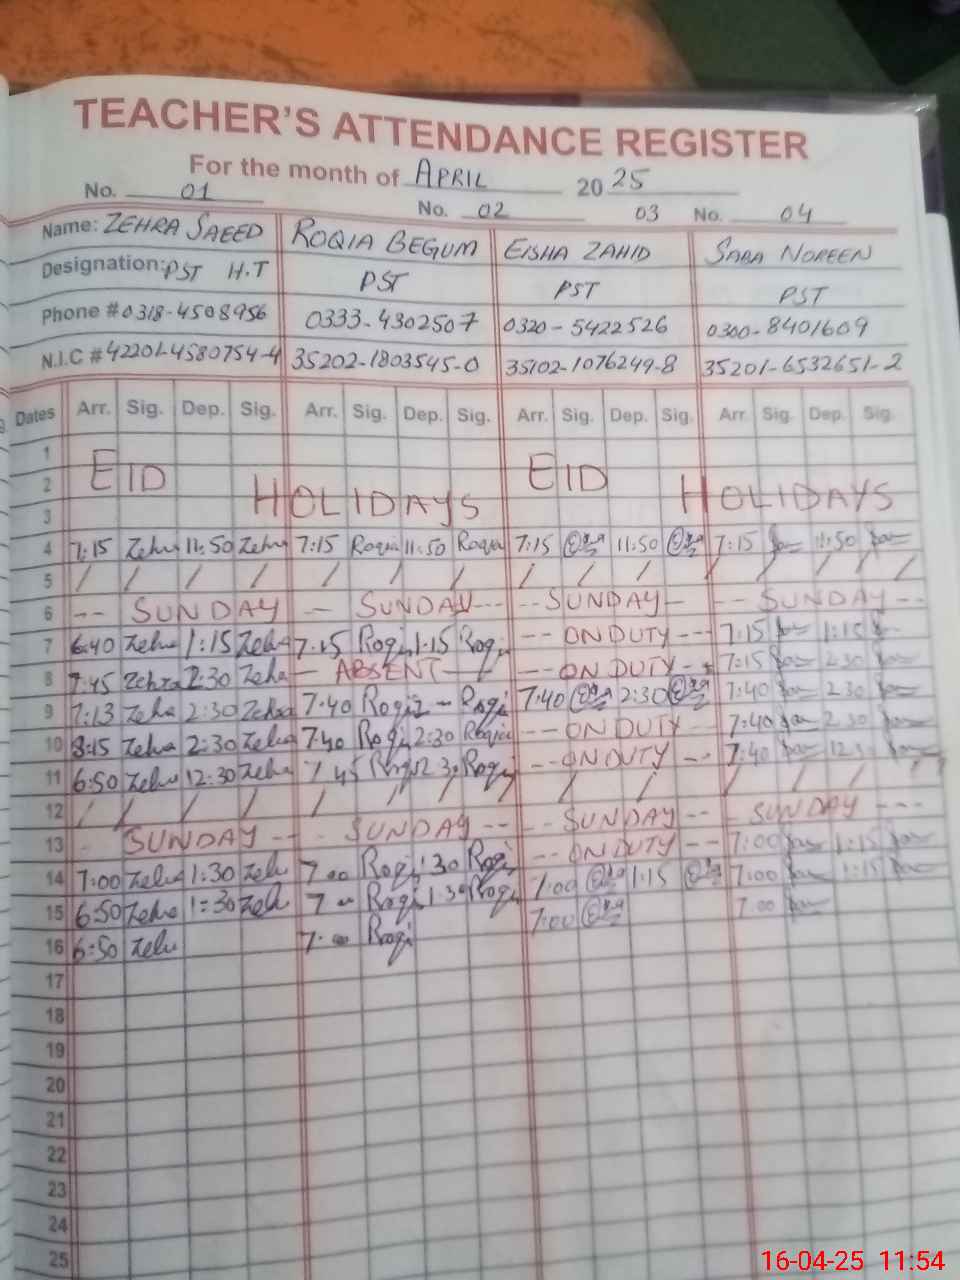 TEACHER'S ATTENDANCE REGISTER
For the month of APRIL 2025
No. 01 No. 02 03 No. 04
Name: ZEHRA SAEED ROQIA BEGUM EISHA ZAHID SARA NOREEN
Designation: PST H.T PST PST PST
Phone # 0318-4508956 0333-4302507 0320-5422526 0300-8401609
N.I.C # 42201-4580754-4 35202-1803545-0 35102-1076249-8 35201-6532651-2
Dates Arr. Sig. Dep. Sig. Arr. Sig. Dep. Sig. Arr. Sig. Dep. Sig. Arr. Sig. Dep. Sig.
1
2 EID HOLIDAYS EID HOLIDAYS
3
4 7:15 Zehra 11:50 Zehra 7:15 Roqia 11:50 Roqia 7:15 11:50 7:15 11:50
5 / / / / / / / / / / / / / / /
6 -- SUNDAY -- SUNDAY --- -- SUNDAY -- -- SUNDAY --
7 6:40 Zehra 1:15 Zehra 7:15 Roqi 1:15 Roqi -- ON DUTY -- 7:15 1:15
8 7:45 Zehra 2:30 Zehra -- ABSENT -- -- ON DUTY -- 7:15 2:30
9 7:13 Zehra 2:30 Zehra 7:40 Roqi Roqi 7:40 2:30 7:40 2:30
10 8:15 Zehra 2:30 Zehra 7:40 Roqi 2:30 Roqia -- ON DUTY -- 7:40 2:30
11 6:50 Zehra 12:30 Zehra 7:45 Roqi Roqi -- ON DUTY -- 7:40
12 / / / / / / / / / / / / / / /
13 SUNDAY -- SUNDAY -- -- SUNDAY -- SUNDAY ---
14 7:00 Zehra 1:30 Zehra 7:00 Roqi 1:30 Roqi -- ON DUTY -- 7:00 1:15
15 6:50 Zehra 1:30 Zehra 7:00 Roqi 1:30 Roqi 7:00 1:15 7:00 1:15
16 6:50 Zehra 7:00 Roqi 7:00 7:00
17
18
19
20
21
22
23
24
25
16-04-25 11:54